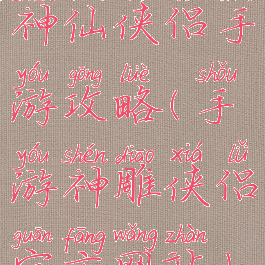 神仙侠侣手
yóu gōng lüè shǒu
游攻略(手
yóu shén diāo xiá lǚ
游神雕侠侣
guān fāng wǎng zhàn
官方网站)